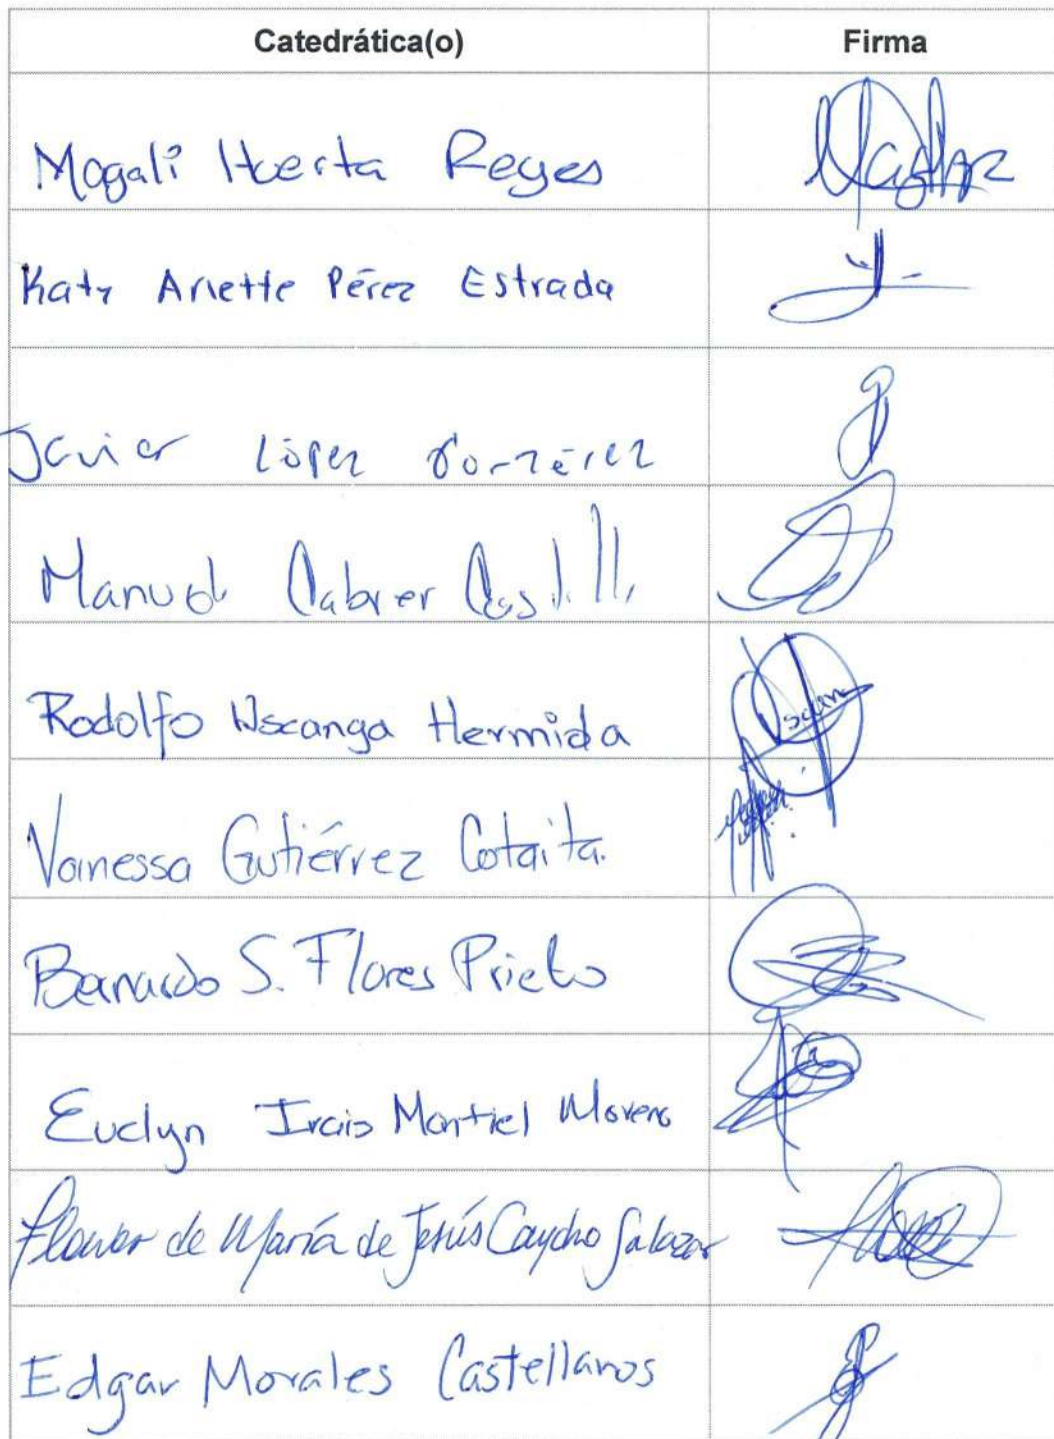 Catedrática(o) Firma
Magali Huerta Reyes
Katy Arlette Pérez Estrada
Javier López González
Manuel Cabrer Castillo
Rodolfo Uscanga Hermida
Vanessa Gutiérrez Cotaita.
Bernardo S. Flores Prieto
Evelyn Irais Montiel Moreno
Flower de María de Jesús Caycho Salazar
Edgar Morales Castellanos